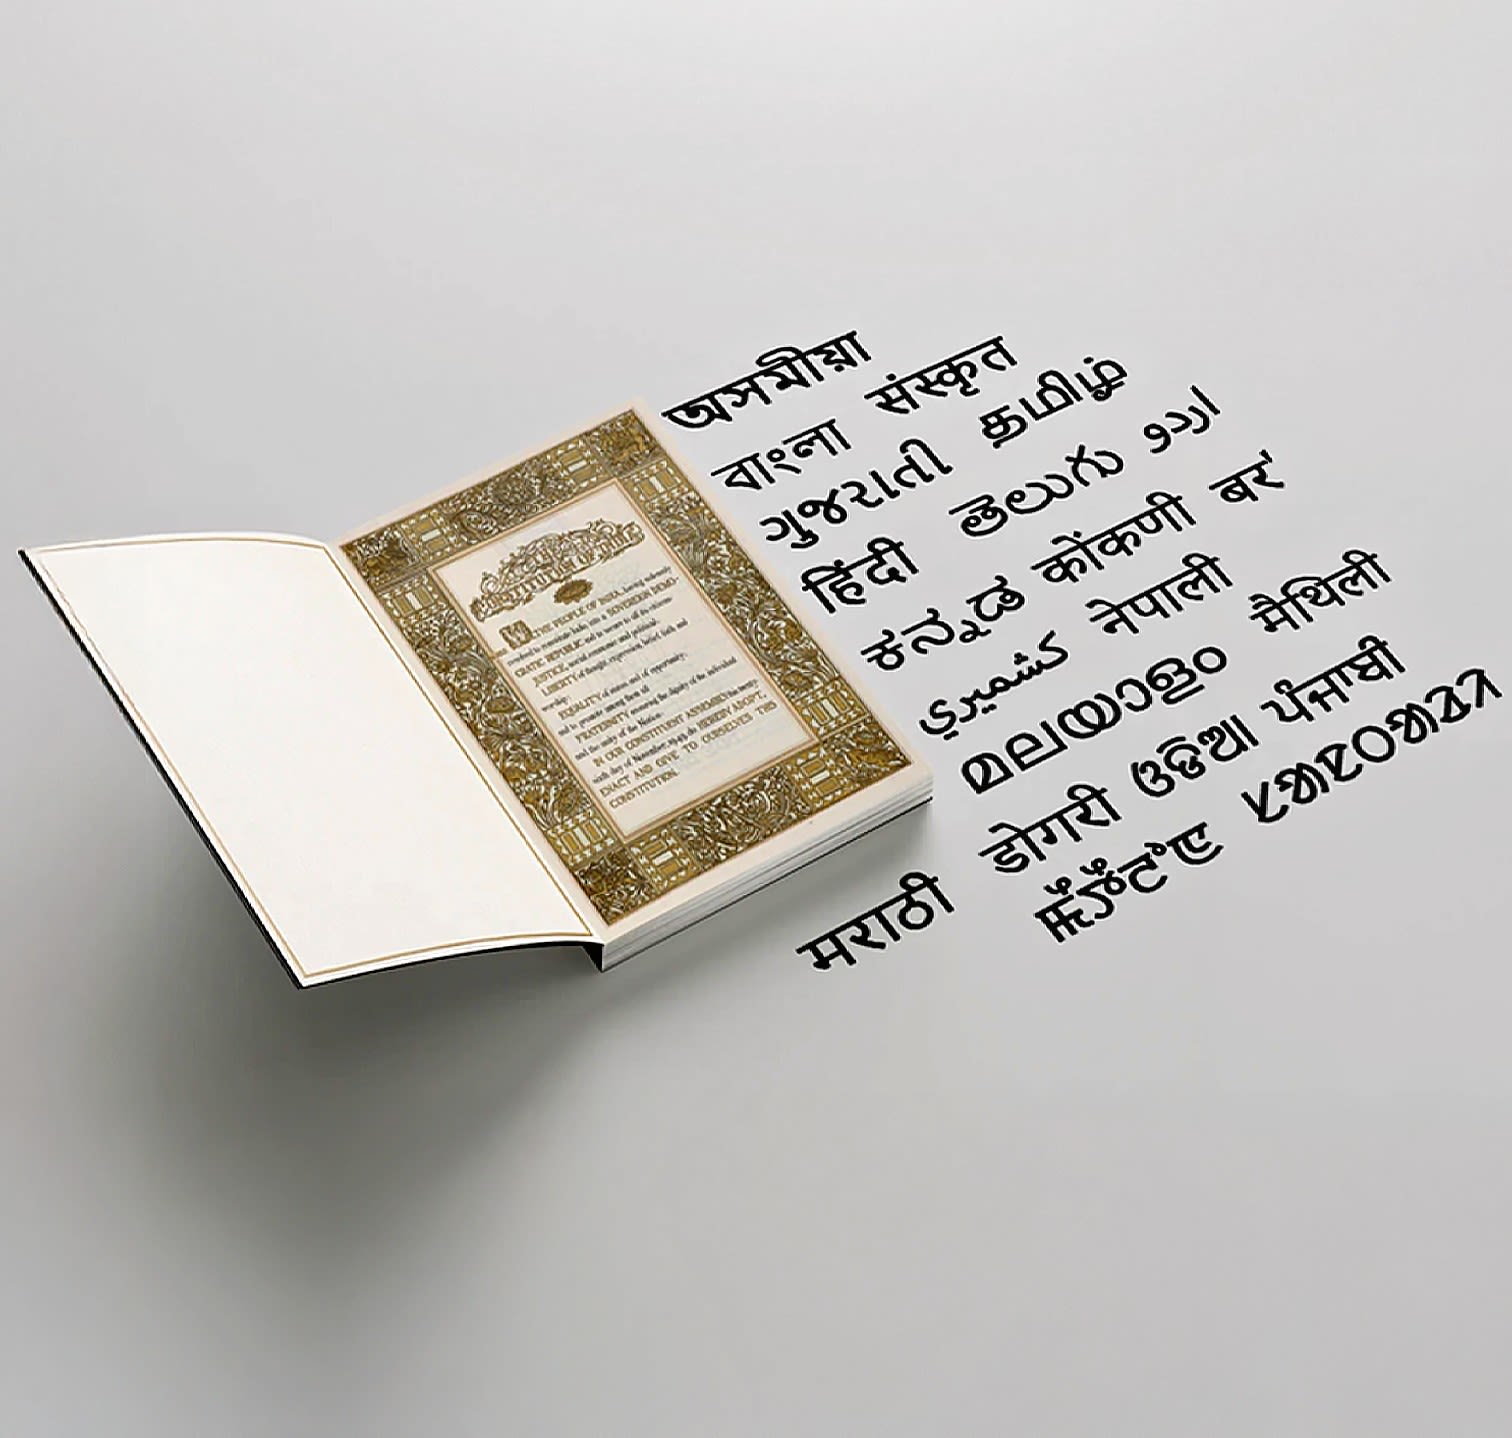 CONSTITUTION OF INDIA
WE, THE PEOPLE OF INDIA, having solemnly
resolved to constitute India into a SOVEREIGN DEMO-
CRATIC REPUBLIC and to secure to all its citizens:
JUSTICE, social, economic and political;
LIBERTY of thought, expression, belief, faith and
worship;
EQUALITY of status and of opportunity;
and to promote among them all
FRATERNITY assuring the dignity of the individual
and the unity of the Nation;
IN OUR CONSTITUENT ASSEMBLY this twenty-
sixth day of November, 1949, do HEREBY ADOPT,
ENACT AND GIVE TO OURSELVES THIS
CONSTITUTION.
অসমীয়া
বাংলা संस्कृत
ગુજરાતી தமிழ்
हिंदी తెలుగు اردو
ಕನ್ನಡ कोंकणी बर'
كشميري नेपाली
മലയാളം मैथिली
डोगरी ଓଡିଆ ਪੰਜਾਬੀ
मराठी